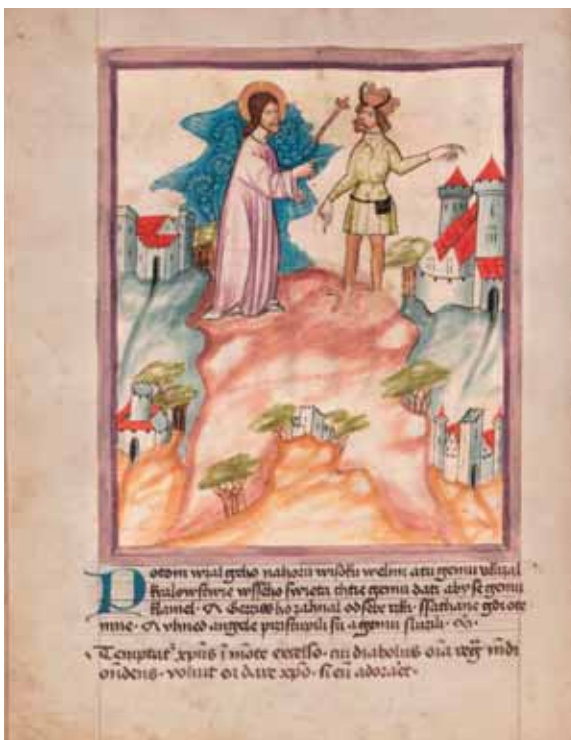 Potom wzal geho nahoru wisoku welmi atu gemu ukazal
kralowstwie wsseho swieta chtie gemu dati aby se gemu
klamel · A Gezziss ho zahnal odsebe rzka · ssathane gdi ote
mne · A yhned angele przistupili su a gemu sluzili · 
Temptat᷑ xp̄us ī mōte excelso · cui diabolus oīa regᷓ mūdi
oñdens · voluit ea dare xp̄o · si eū adorar̄et ·